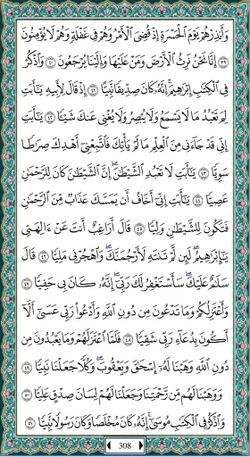 وَأَنذِرْهُمْ يَوْمَ الْحَسْرَةِ إِذْ قُضِىَ الْأَمْرُ وَهُمْ فِى غَفْلَةٍ وَهُمْ لَا يُؤْمِنُونَ
٣٩ إِنَّا نَحْنُ نَرِثُ الْأَرْضَ وَمَنْ عَلَيْهَا وَإِلَيْنَا يُرْجَعُونَ ٤٠ وَاذْكُرْ
فِى الْكِتَابِ إِبْرَاهِيمَ إِنَّهُ كَانَ صِدِّيقًا نَّبِيًّا ٤١ إِذْ قَالَ لِأَبِيهِ يَا أَبَتِ
لِمَ تَعْبُدُ مَا لَا يَسْمَعُ وَلَا يُبْصِرُ وَلَا يُغْنِى عَنكَ شَيْئًا ٤٢ يَا أَبَتِ
إِنِّى قَدْ جَاءَنِى مِنَ الْعِلْمِ مَا لَمْ يَأْتِكَ فَاتَّبِعْنِى أَهْدِكَ صِرَاطًا
سَوِيًّا ٤٣ يَا أَبَتِ لَا تَعْبُدِ الشَّيْطَانَ إِنَّ الشَّيْطَانَ كَانَ لِلرَّحْمَٰنِ
عَصِيًّا ٤٤ يَا أَبَتِ إِنِّى أَخَافُ أَن يَمَسَّكَ عَذَابٌ مِّنَ الرَّحْمَٰنِ
فَتَكُونَ لِلشَّيْطَانِ وَلِيًّا ٤٥ قَالَ أَرَاغِبٌ أَنتَ عَنْ آلِهَتِى
يَا إِبْرَاهِيمُ لَئِن لَّمْ تَنتَهِ لَأَرْجُمَنَّكَ وَاهْجُرْنِى مَلِيًّا ٤٦ قَالَ
سَلَامٌ عَلَيْكَ سَأَسْتَغْفِرُ لَكَ رَبِّى إِنَّهُ كَانَ بِى حَفِيًّا ٤٧
وَأَعْتَزِلُكُمْ وَمَا تَدْعُونَ مِن دُونِ اللَّهِ وَأَدْعُو رَبِّى عَسَىٰ أَلَّا
أَكُونَ بِدُعَاءِ رَبِّى شَقِيًّا ٤٨ فَلَمَّا اعْتَزَلَهُمْ وَمَا يَعْبُدُونَ مِن
دُونِ اللَّهِ وَهَبْنَا لَهُ إِسْحَاقَ وَيَعْقُوبَ وَكُلًّا جَعَلْنَا نَبِيًّا
٤٩ وَوَهَبْنَا لَهُم مِّن رَّحْمَتِنَا وَجَعَلْنَا لَهُمْ لِسَانَ صِدْقٍ عَلِيًّا
٥٠ وَاذْكُرْ فِى الْكِتَابِ مُوسَىٰ إِنَّهُ كَانَ مُخْلَصًا وَكَانَ رَسُولًا نَّبِيًّا ٥١
308